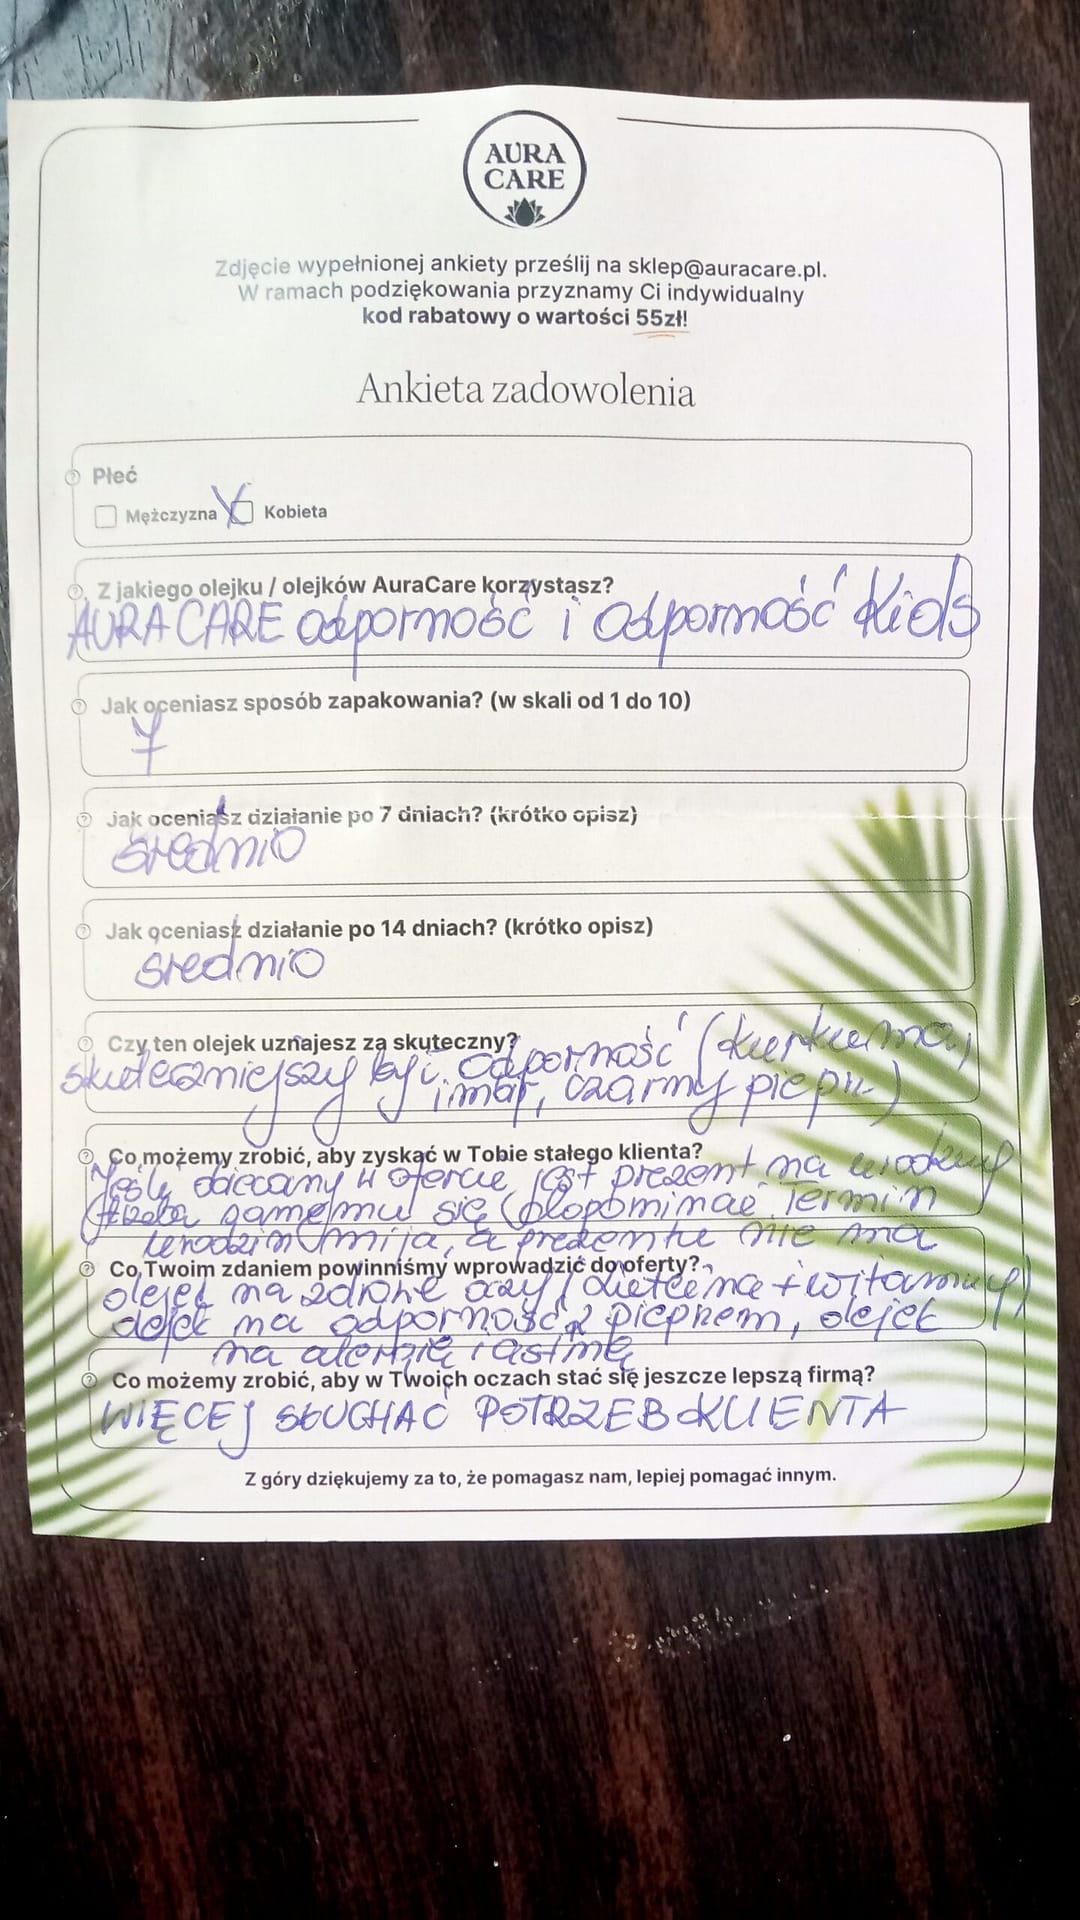 AURA
CARE
Zdjęcie wypełnionej ankiety prześlij na sklep@auracare.pl.
W ramach podziękowania przyznamy Ci indywidualny
kod rabatowy o wartości 55zł!
Ankieta zadowolenia
Płeć
Mężczyzna X Kobieta
Z jakiego olejku / olejków AuraCare korzystasz?
AURA CARE odporność i odporność Kids
Jak oceniasz sposób zapakowania? (w skali od 1 do 10)
7
Jak oceniasz działanie po 7 dniach? (krótko opisz)
średnio
Jak oceniasz działanie po 14 dniach? (krótko opisz)
średnio
Czy ten olejek uznajesz za skuteczny?
skuteczniejszy był odporność (kurkuma,
imbir, czarny pieprz)
Co możemy zrobić, aby zyskać w Tobie stałego klienta?
Jeśli obiecany w ofercie jest prezent na urodziny
się dopominać. Termin
urodzin mija, a prezentu nie ma
Co Twoim zdaniem powinniśmy wprowadzić do oferty?
olejek na zdrowe oczy (luteina + witaminy)
olejek na odporność z pieprzem, olejek
na alergię i astmę
Co możemy zrobić, aby w Twoich oczach stać się jeszcze lepszą firmą?
WIĘCEJ SŁUCHAĆ POTRZEB KLIENTA
Z góry dziękujemy za to, że pomagasz nam, lepiej pomagać innym.